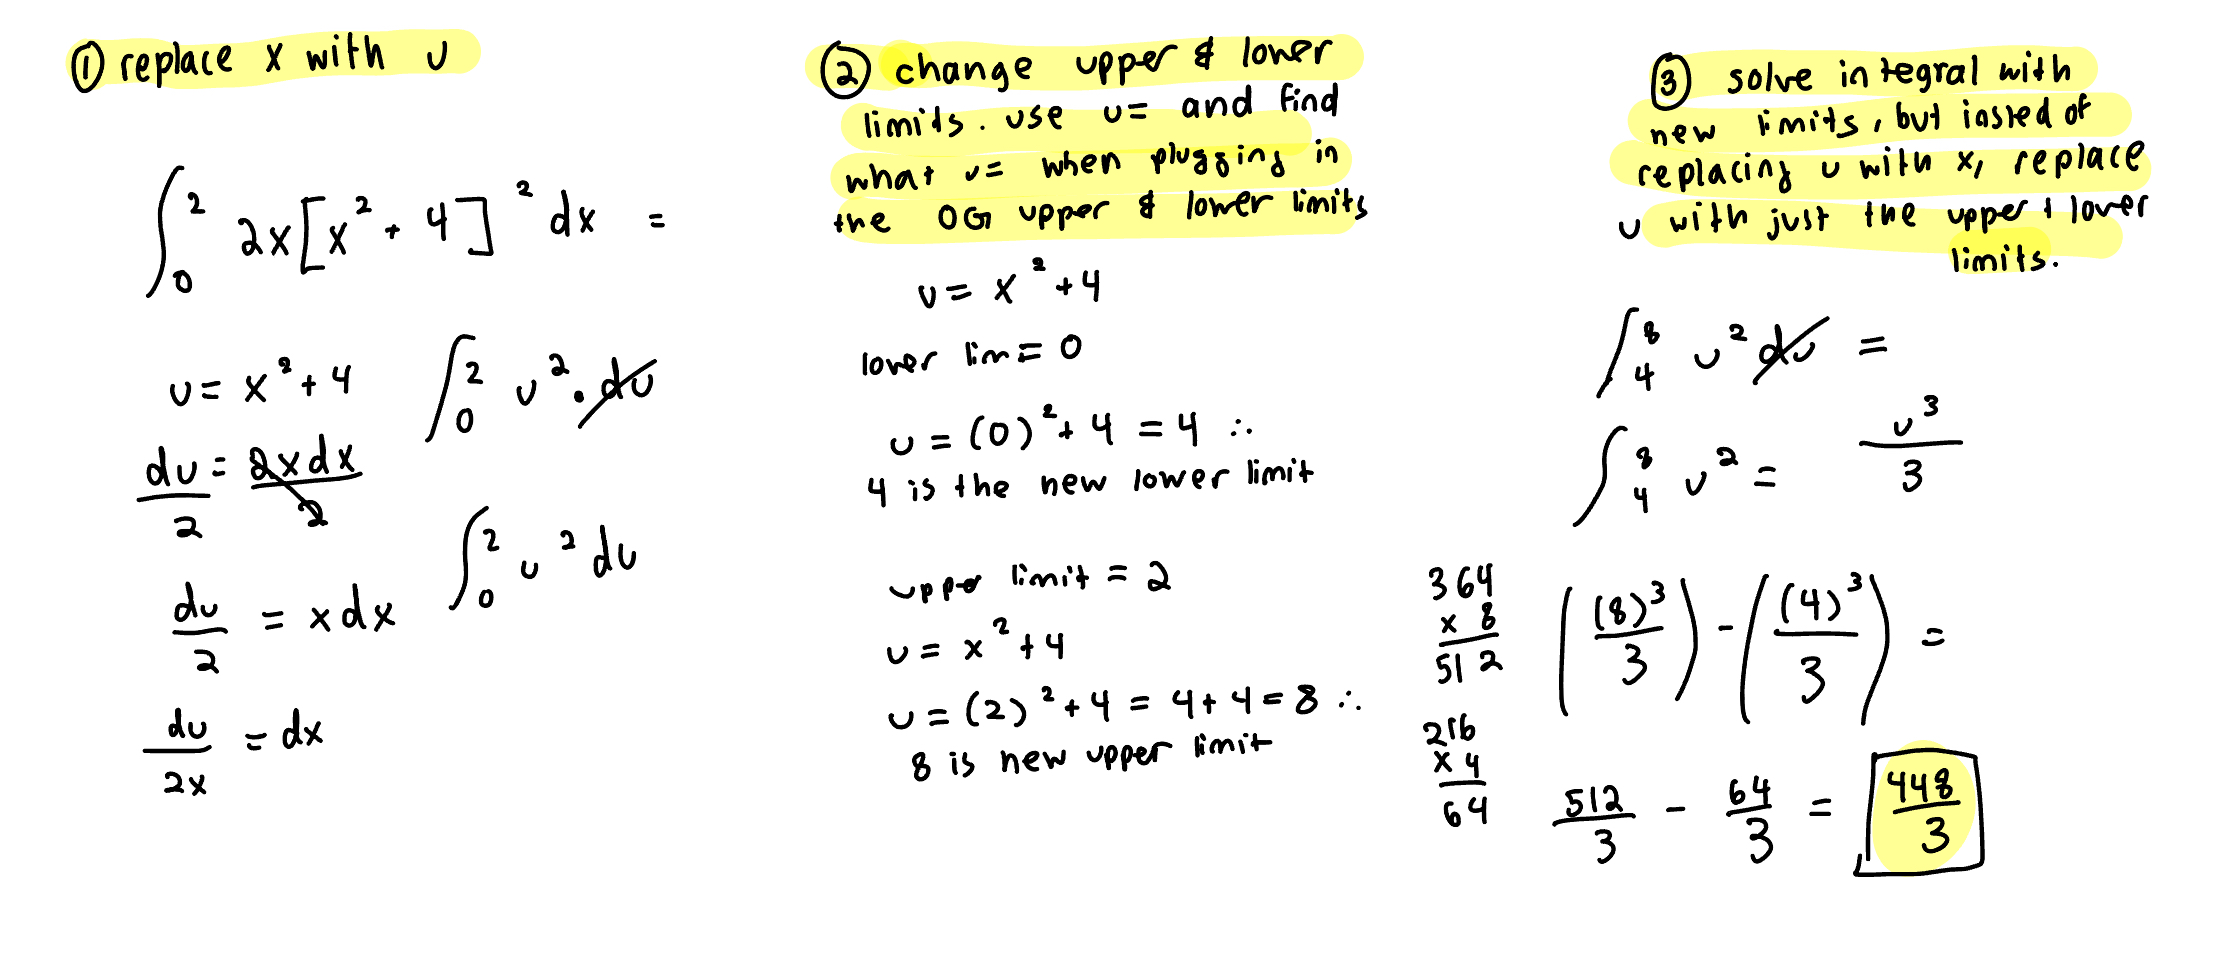 ① replace x with u
∫₀² 2x[x² + 4]² dx =
u = x² + 4
∫₀² u² · du
du/2 = 2xdx/2
∫₀² u² du
du/2 = xdx
du/2x = dx
② change upper & lower
limits. use u= and find
what u= when plugging in
the OG upper & lower limits
u = x² + 4
lower lim = 0
u = (0)² + 4 = 4 ∴
4 is the new lower limit
upper limit = 2
u = x² + 4
u = (2)² + 4 = 4 + 4 = 8 ∴
8 is new upper limit
③ solve integral with
new limits, but insted of
replacing u with x, replace
u with just the upper + lower
limits.
∫₄⁸ u² du =
∫₄⁸ u² = u³/3
³64
x 8
512
((8)³/3) - ((4)³/3) =
²16
x 4
64
512/3 - 64/3 = 448/3